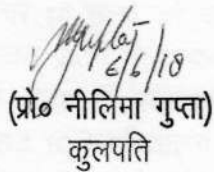 6/6/18
(प्रो० नीलिमा गुप्ता)
कुलपति